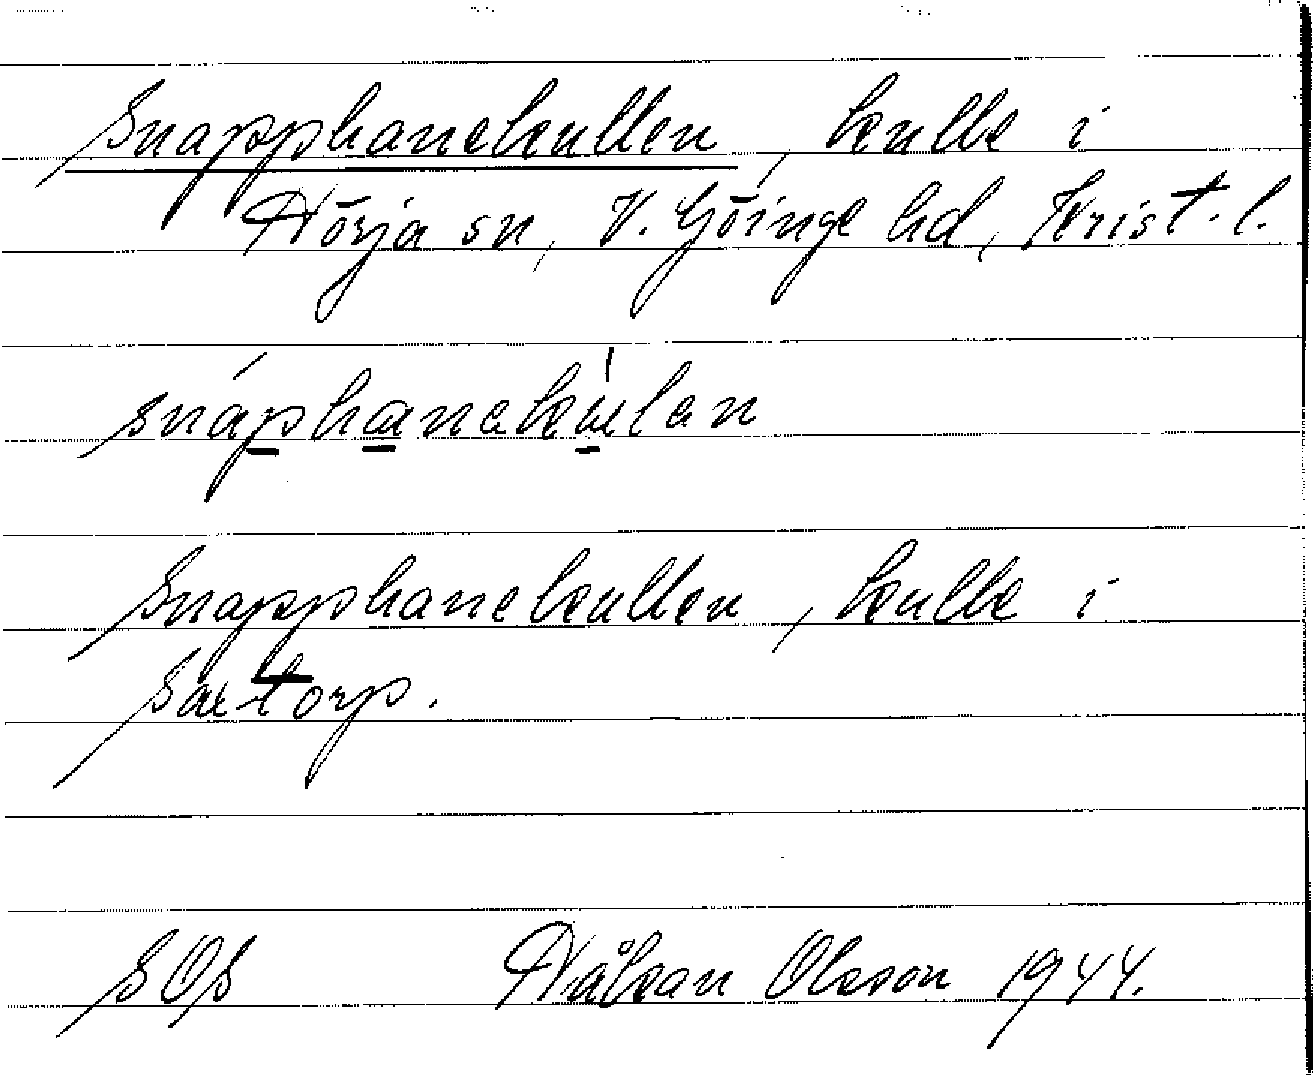 Snapphanekullen, kulle i
Nörja sn, V. Göinge hd, Krist. l.
snáphanekúlen
Snapphanekullen, kulle i
Sartorp.
SOS Håkan Olsson 1944.